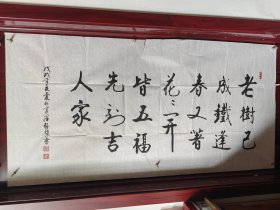 老樹已
成鐵逢
春又著
花〻開
皆五福
先到吉
人家
戊戌年